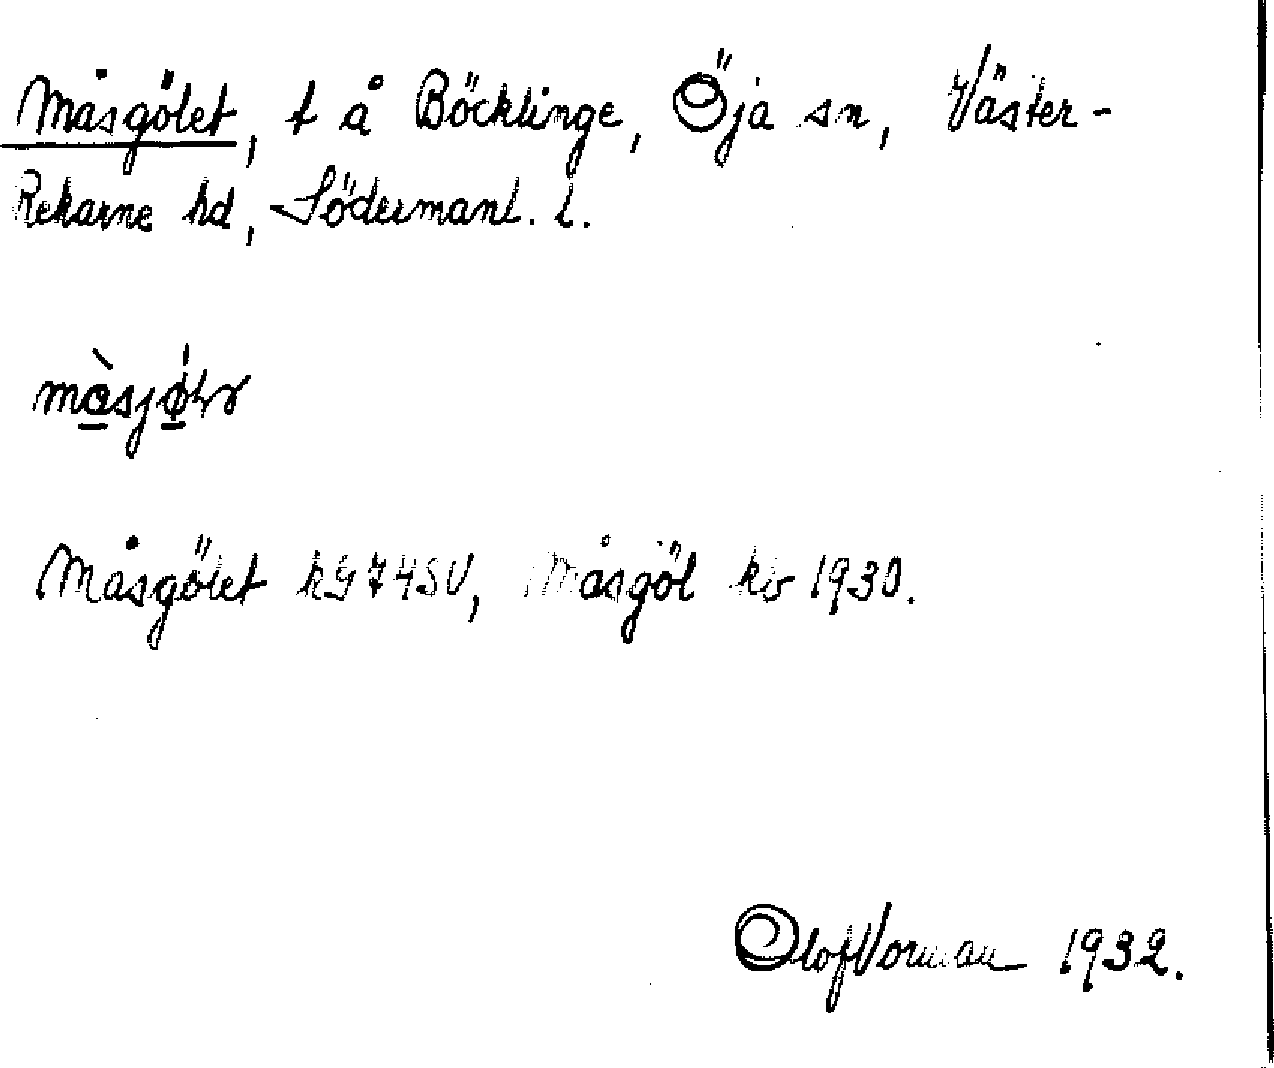 Måsgölet, t å Böcklinge, Öja sn, Väster-
Rekarne hd, Södermanl. l.
Måsgölet hG74SV, Måsgöl kb 1930.
Olof Vorman 1932.